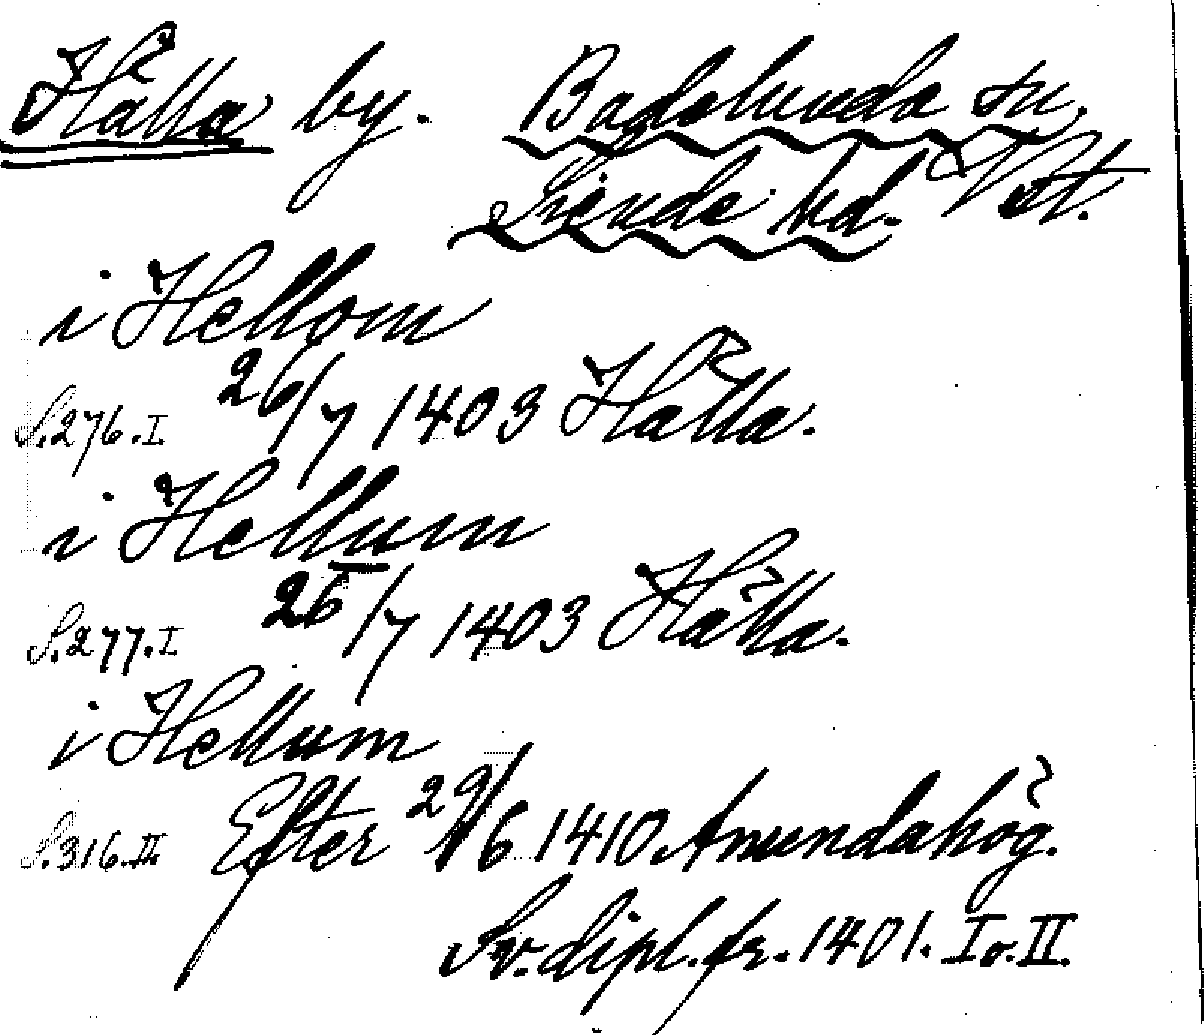 Hälla by. Badelunda sn,
Siende hd. Vstm.
i Hellom
S. 276. I 26/7 1403 Hälla.
i Hellum
S. 277. I 26/7 1403 Hälla.
i Hellum
S. 316. II Efter 29/6 1410 Anundahög.
Sv. dipl. fr. 1401. I o. II.